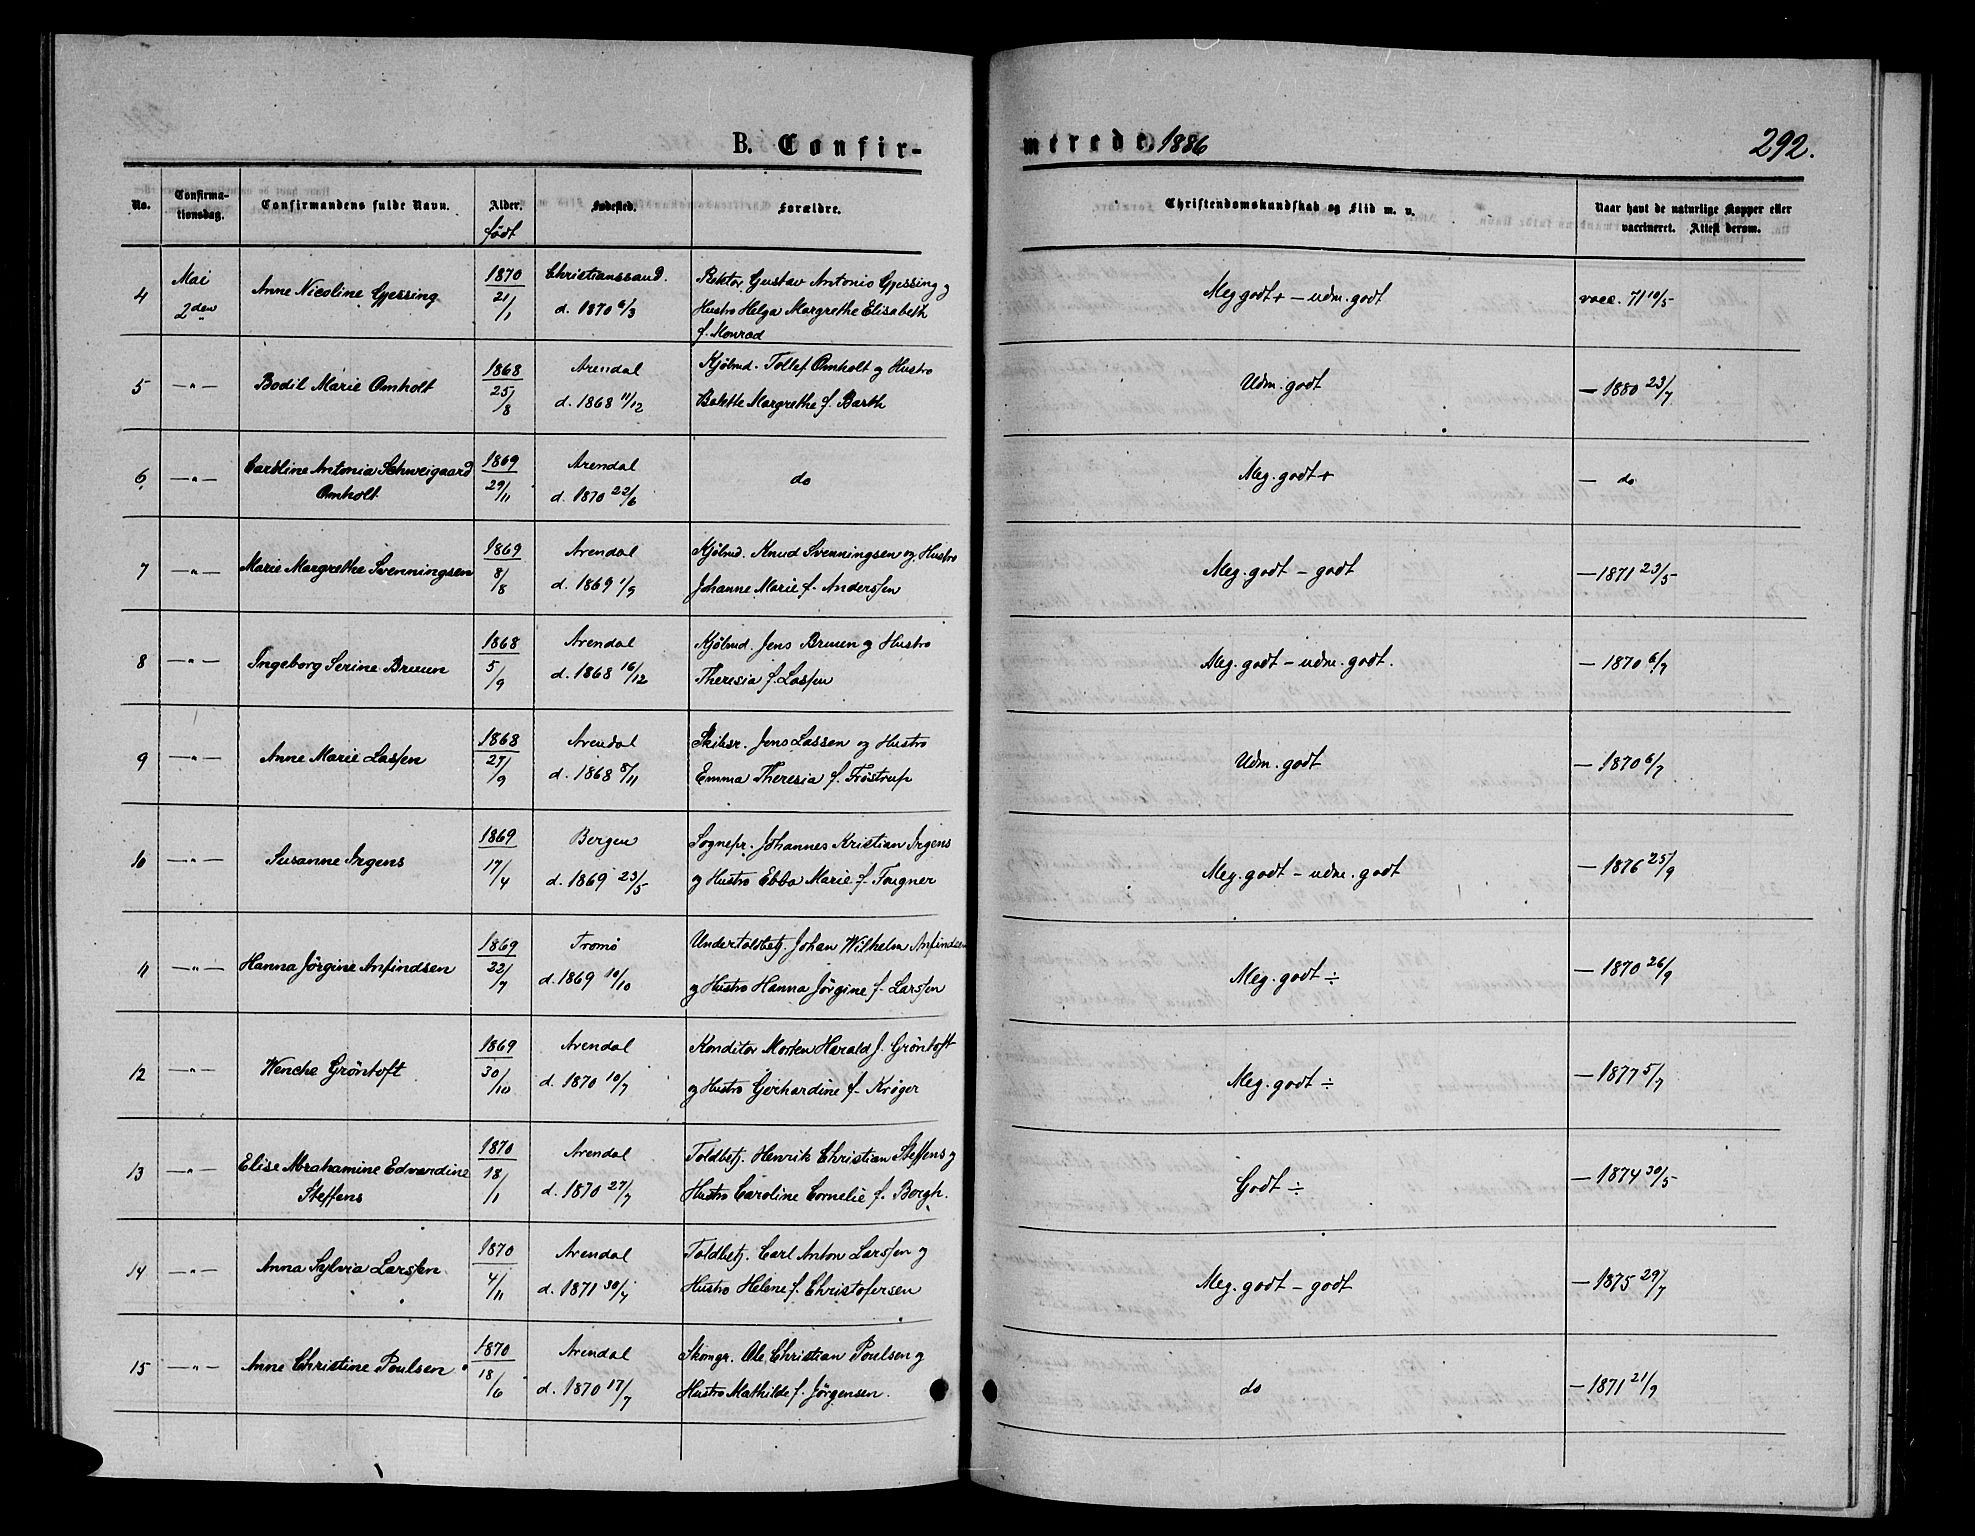 B. Confir-
merede 1886
292.
No. Confirma-tionsdag. Confirmandens fulde Navn. Alder. født Fødested. Forældre. Christendomskundskab og Flid m. v. Naar havt de naturlige Kopper eller vaccineret. Attest derom.
4 Mai 2den Anne Nicoline Gjessing 1870 21/1 Christianssand. d. 1870 6/3 Rektor Gustav Antonio Gjessing og Hustro Helga Margrethe Elisabeth f. Monrad Meg godt + – udm. godt vacc. 71 10/5
5 –"– Bodil Marie Omholt 1868 25/8 Arendal d. 1868 11/12 Kjøbmd. Tollef Omholt og Hustro Bolette Margrethe f. Barth Udm. godt – 1880 23/7
6 –"– Caroline Antonia Schweigaard Omholt 1869 29/11 Arendal d. 1870 22/6 do Meg. godt + – do
7 –"– Marie Margrethe Svenningsen 1869 8/8 Arendal d. 1869 1/9 Kjøbmd. Knud Svenningsen og Hustro Johanne Marie f. Anderssen Meg. godt – godt – 1871 23/5
8 –"– Ingeborg Serine Bruun 1868 5/9 Arendal d. 1868 16/12 Kjøbmd. Jens Bruun og Hustro Theresia f. Lassen Meg. godt – udm. godt. – 1870 6/7
9 –"– Anne Marie Lassen 1868 27/9 Arendal d. 1868 8/11 Skibsr. Jens Lassen og Hustro Emma Theresia f. Frøstrup Udm. godt – 1870 6/7
10 –"– Susanne Irgens 1869 17/4 Bergen d. 1869 23/5 Sognepr. Johannes Kristian Irgens og Hustro Ebba Marie f. Fougner Meg. godt – udm. godt – 1876 25/9
11 –"– Hanna Jörgine Anfindsen 1869 22/7 Tromö d. 1869 10/10 Undertoldbetj. Johan Wilhelm Anfindsen og Hustro Hanna Jörgine f. Larssen Meg. godt ÷ – 1870 26/9
12 –"– Wenche Gröntoft 1869 30/10 Arendal d. 1870 10/7 Konditor Morten Harald J. Gröntoft og Hustro Gerhardine f. Krøger Meg. godt ÷ – 1877 5/7
13 –"– Elise Abrahamine Edvardine Steffens 1870 18/1 Arendal d. 1870 27/7 Toldbetj. Henrik Christian Steffens og Hustro Caroline Cornelie f. Borgh. Godt ÷ – 1874 30/5
14 –"– Anna Sylvia Larssen 1870 4/11 Arendal d. 1871 30/7 Toldbetj. Carl Anton Larssen og Hustro Helene f. Christofersen Meg. godt – godt – 1875 29/7
15 –"– Anne Christine Poulsen 1870 18/6 Arendal d. 1870 17/7 Skomgr. Ole Christian Poulsen og Hustro Mathilde f. Jörgensen. do – 1871 21/9